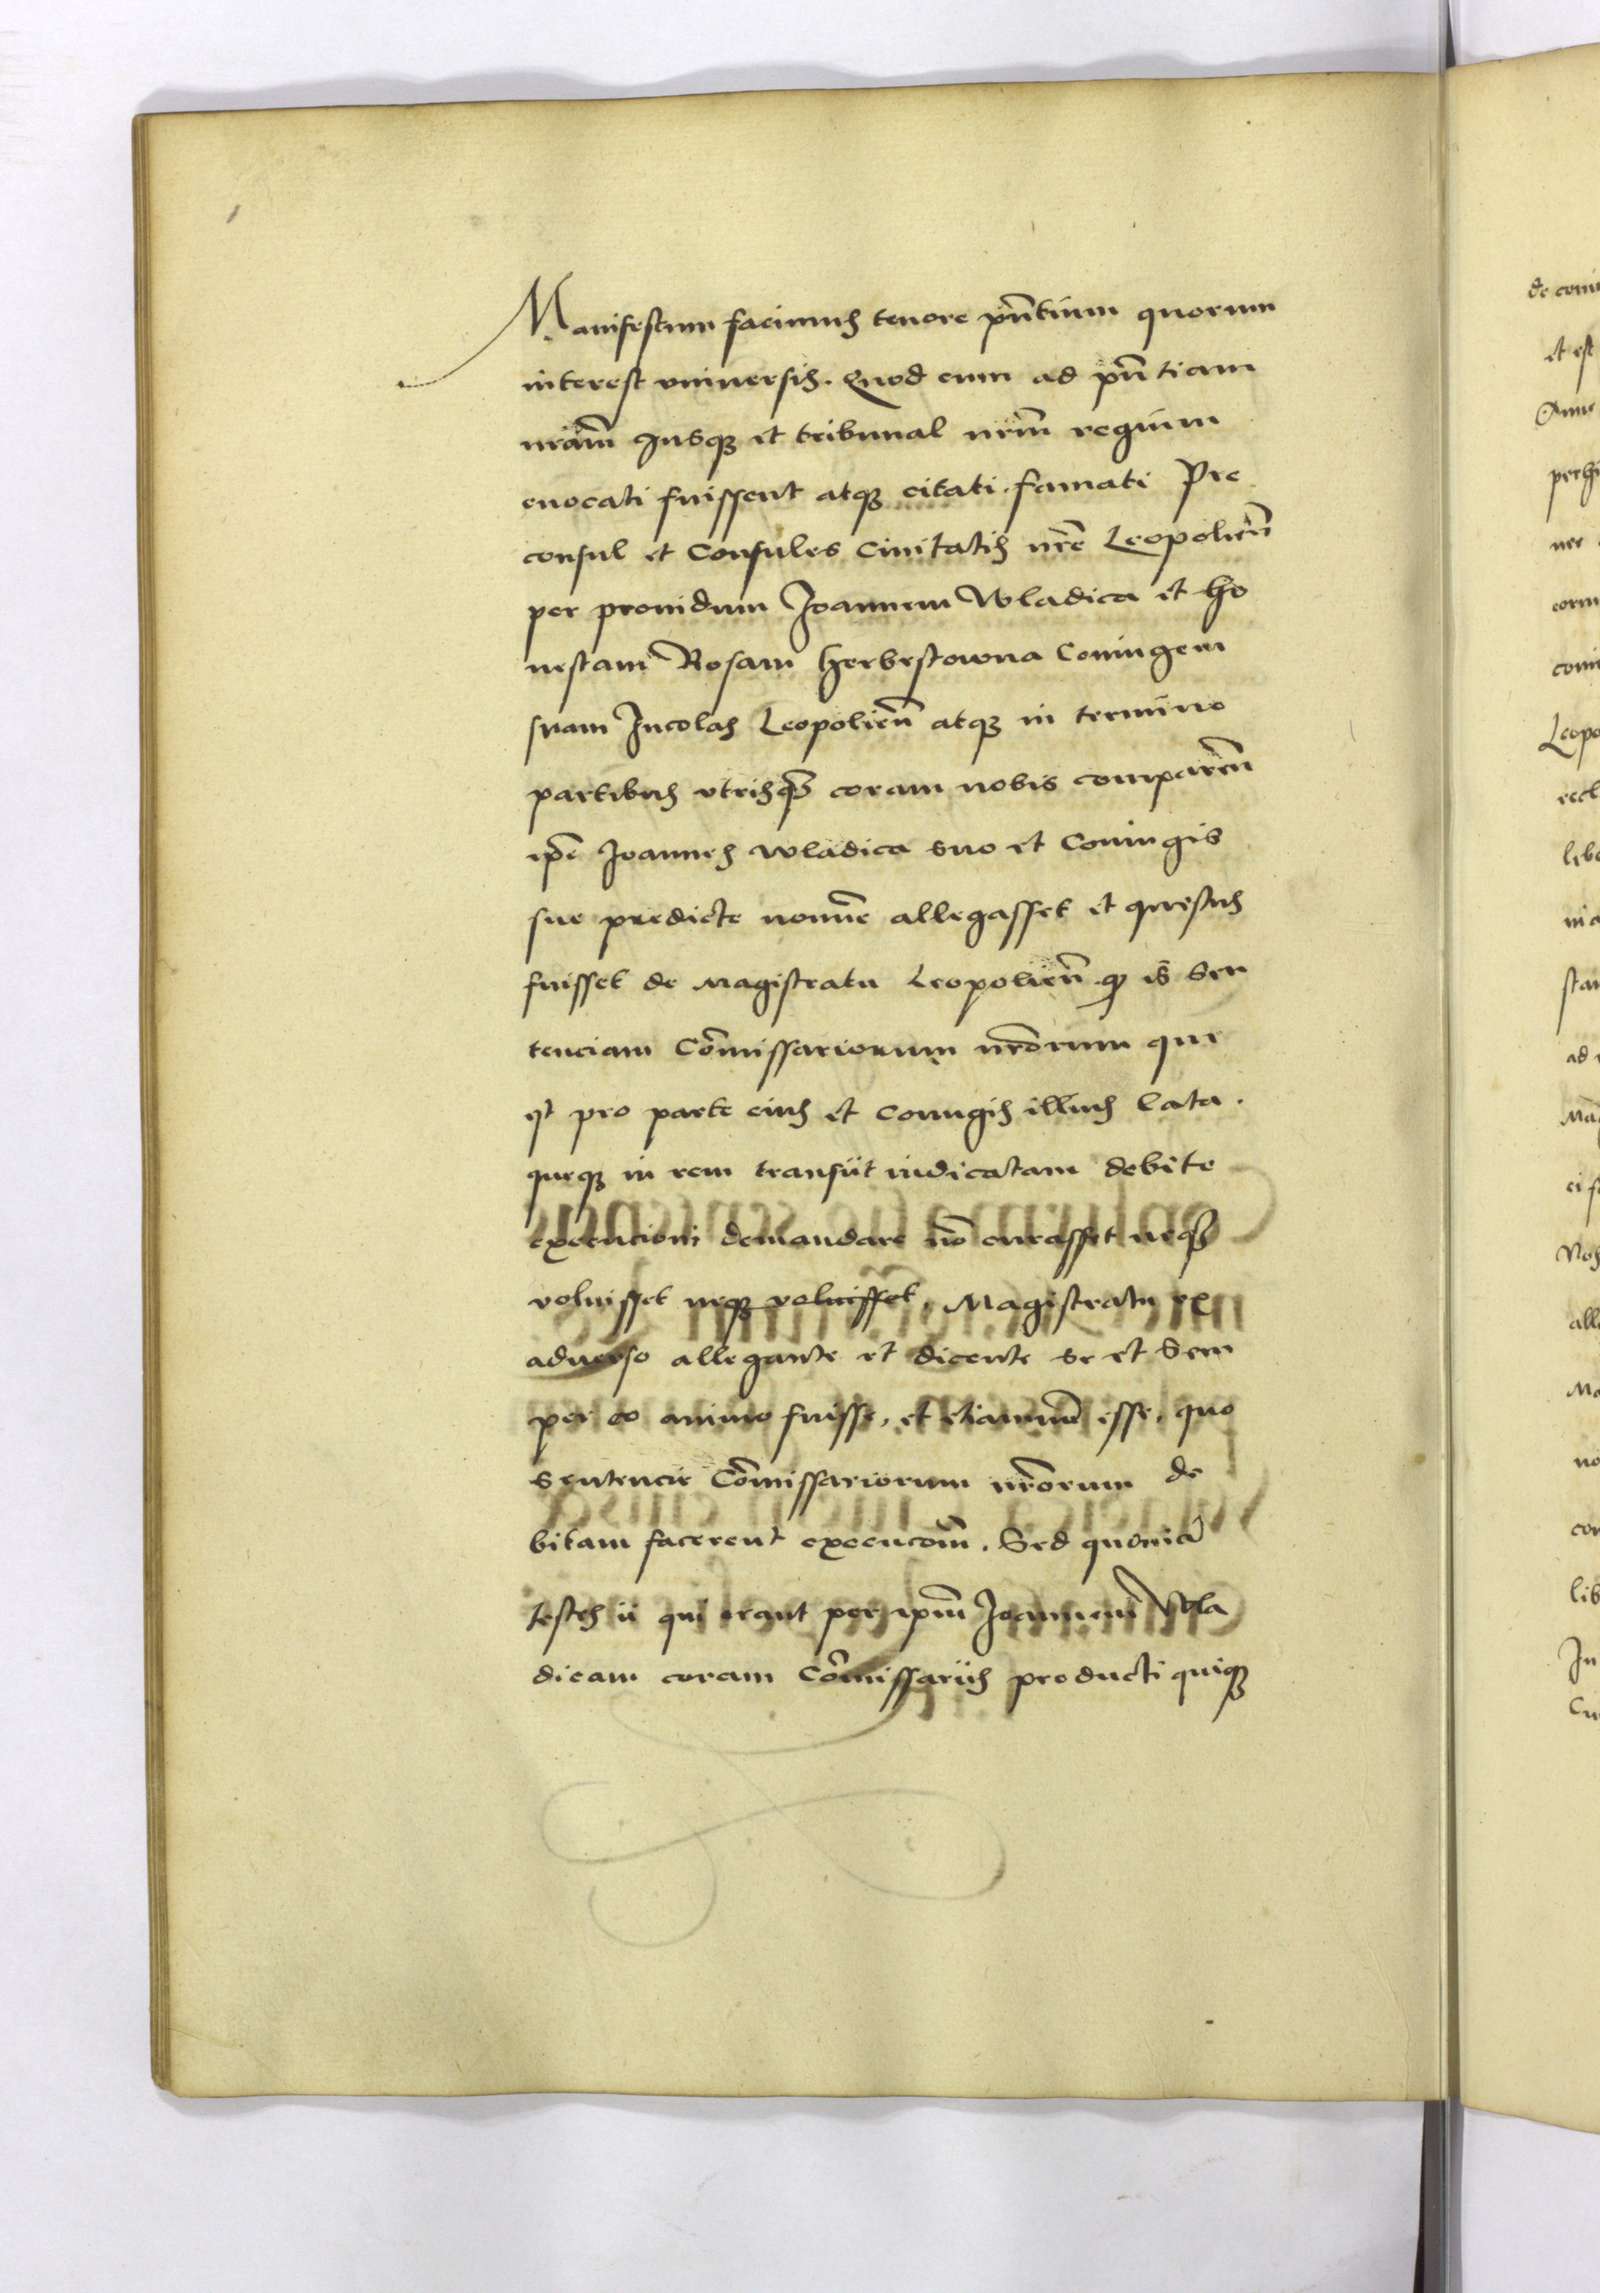 Manifestum facimus tenore pñtium quorum
interest vniuersis. Quod cum ad pñtiam
nrãm Iusqȝ et tribunal nrm̃ regium
euocati fuissent atqȝ citati famati Pre
consul et Consules Ciuitatis nrẽ Leopolieñ
per prouidum Joannem Wladica et ho
nestam Rosam Herbestowna Coniugem
suam Incolas Leopolieñ atqȝ in termino
partibus vtrisqȝ coram nobis comparẽn
ipẽ Joannes Wladica suo et Coniugis
sue predicte nomĩe allegasset et questus
fuisset de Magistratu Leopolieñ qȝ is Sen
tenciam Cõmissariorum nrõrum que
est pro parte eius et Coniugis illius lata.
queqȝ in rem transiit iudicatam debite
execucioni demandare nõ curasset neqȝ
voluisset neqȝ voluisset, Magistratu ex
aduerso allegante et dicente se et Sem
per eo animo fuisse, et etiamnũ esse, quo
Sentencie Cõmissariorum nrõrum de
bitam facerent execucõm̃. Sed quoniã
testes ii qui erant per ipm̃ Joannem Wla
dicam coram Cõmissariis producti quiqȝ